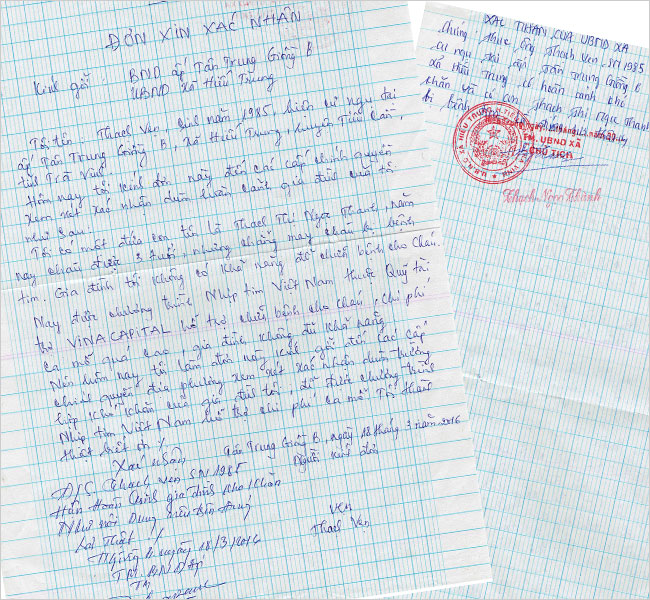 ĐƠN XIN XÁC NHẬN.
Kính gởi: BND ấp Tân Trung Giồng B
UBND xã Hiếu Trung
Tôi tên: Thạch Ven, sinh năm 1985, hiện cư ngụ tại
ấp Tân Trung Giồng B, xã Hiếu Trung, huyện Tiểu Cần,
tỉnh Trà Vinh.
Hôm nay tôi kính đơn này đến các cấp chính quyền
xem xét xác nhận dùm hoàn cảnh gia đình của tôi
như sau.
Tôi có một đứa con tên là Thạch Thị Ngọc Thanh, năm
nay cháu được 3 tuổi, nhưng chẳng may cháu bị bệnh
tim. Gia đình tôi không có khả năng để chữa bệnh cho cháu.
Nay được chương trình Nhịp tim Việt Nam thuộc Quỹ tài
trợ VINACAPITAL hỗ trợ chữa bệnh cho cháu, chi phí
ca mổ quá cao, gia đình không đủ khả năng.
Nên hôm nay tôi làm đơn này kính gởi đến các cấp
chính quyền địa phương xem xét xác nhận dùm trường
hợp khó khăn của gia đình tôi, để được chương trình
Nhịp tim Việt Nam hỗ trợ chi phí ca mổ. Tôi thành
thật biết ơn ./.
Tân Trung Giồng B, ngày 18 tháng 3 năm 2016
Xác nhận
Người kính đơn
Thạch Ven SN 1985
Hoàn cảnh gia đình khó khăn
Như nội dung nêu
Ven
Thạch Ven
ngày 18/3/2016
BND ấp
XÁC NHẬN CỦA UBND XÃ
Chứng thực ông Thạch Ven, SN 1985
cư ngụ tại ấp Tân Trung Giồng B
xã Hiếu Trung có hoàn cảnh khó
khăn và có con Thạch Thị Ngọc Thanh
bị bệnh
TM. UBND XÃ
CHỦ TỊCH
Thạch Ngọc Thành